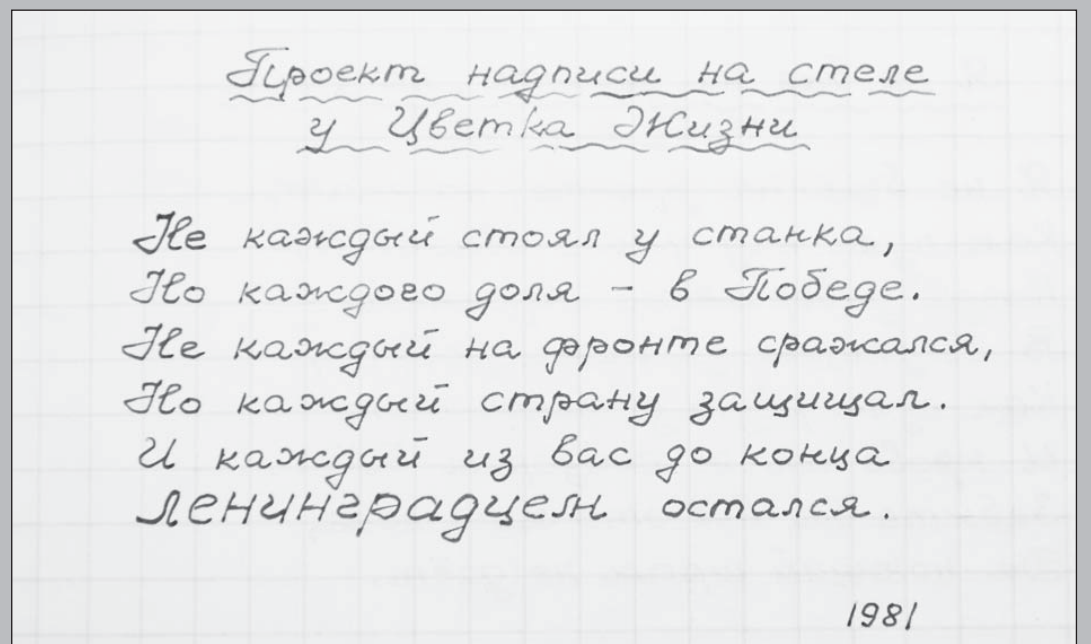 Проект надписи на стеле
у Цветка Жизни
Не каждый стоял у станка,
Но каждого доля - в Победе.
Не каждый на фронте сражался,
Но каждый страну защищал.
И каждый из вас до конца
ленинградцем остался.
1981